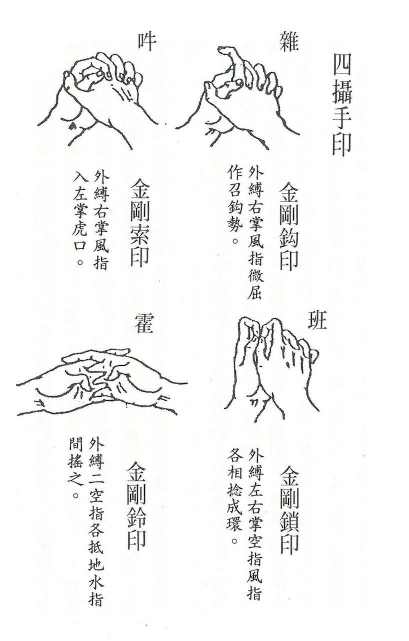 四攝手印
雜
金剛鈎印
外縛右掌風指微屈
作召鈎勢。
吽
金剛索印
外縛右掌風指
入左掌虎口。
班
金剛鎖印
外縛左右掌空指風指
各相捻成環。
霍
金剛鈴印
外縛二空指各抵地水指
間搖之。